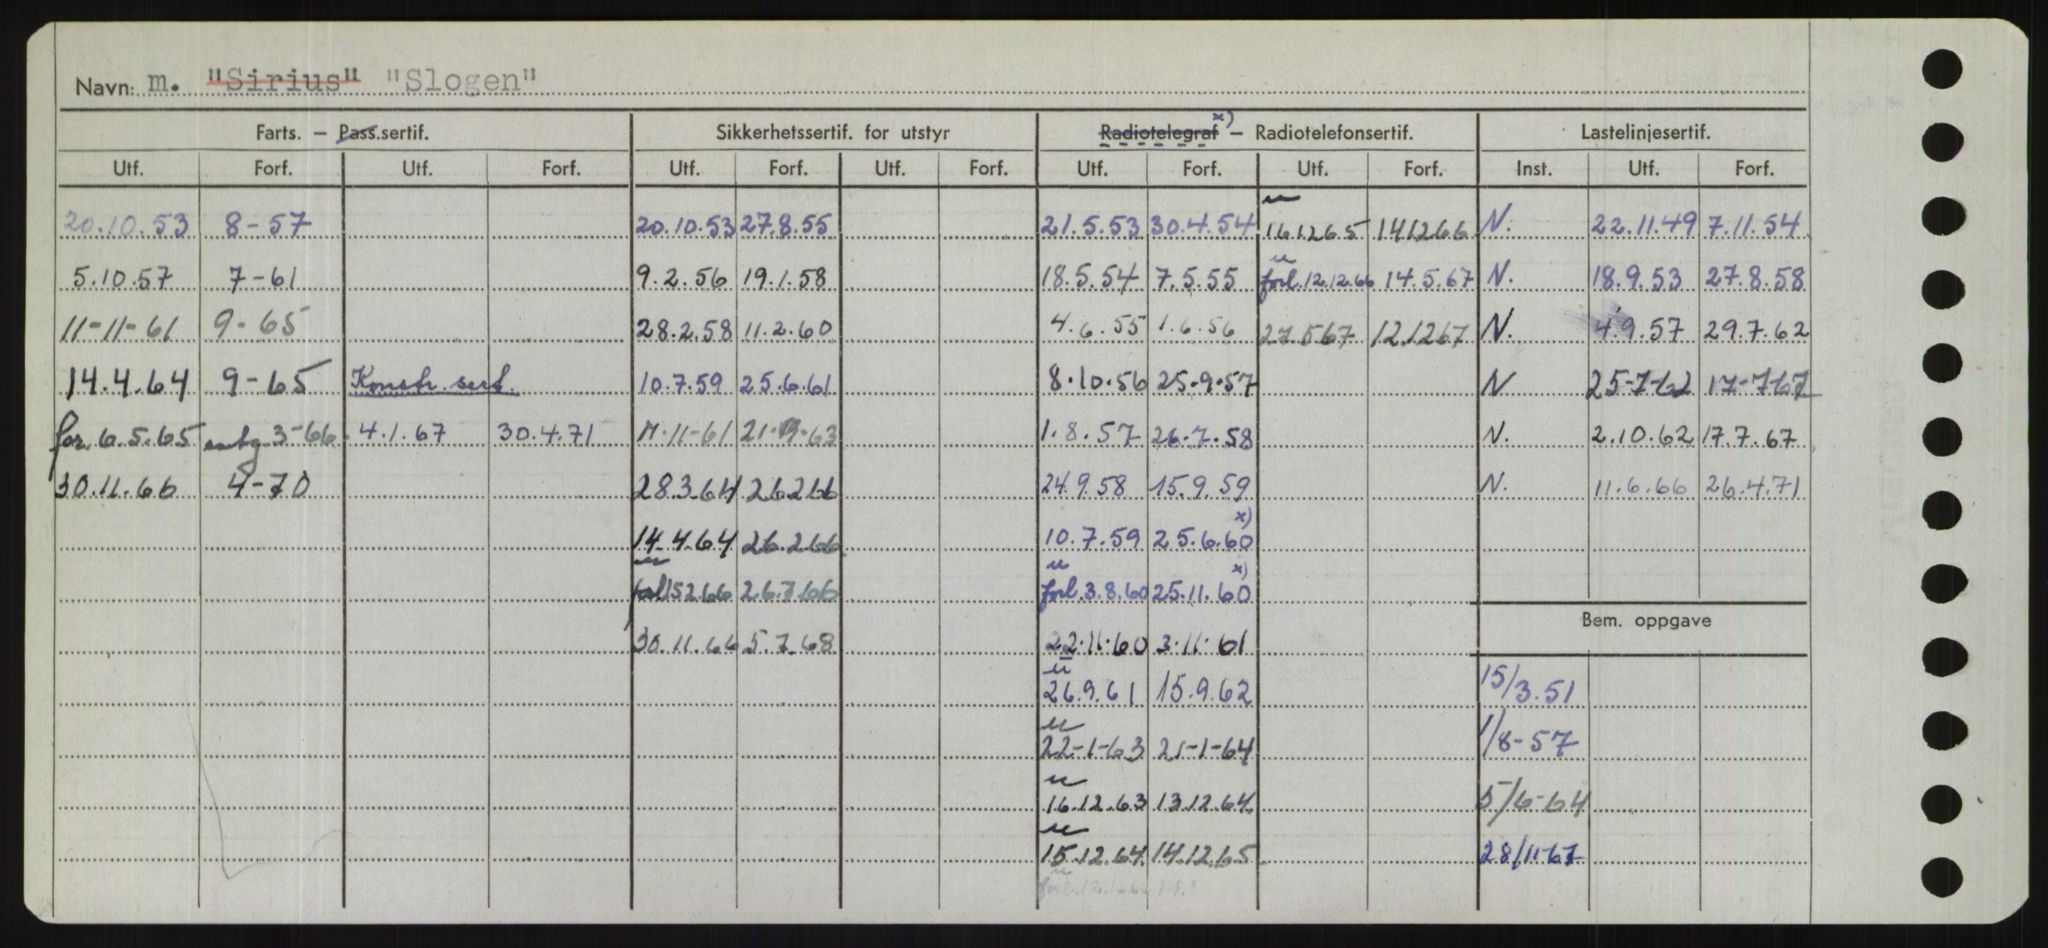 Navn: m. "Sirius" "Slogen"
Farts. – Pass.sertif. Sikkerhetssertif. for utstyr Radiotelegraf x) – Radiotelefonsertif. Lastelinjesertif.
Utf. Forf. Utf. Forf. Utf. Forf. Utf. Forf. Utf. Forf. Utf. Forf. Inst. Utf. Forf.
20.10.53 8-57 20.10.53 27.8.55 21.5.53 30.4.54 u 16.12.65 14.12.66 N. 22.11.49 7.11.54
5.10.57 7-61 9.2.56 19.1.58 18.5.54 7.5.55 u forl. 12.12.66 14.5.67 N. 18.9.53 27.8.58
11-11-61 9-65 28.2.58 11.2.60 4.6.55 1.6.56 27.5.67 12.12.67 N. 4.9.57 29.7.62
14.4.64 9-65 Konstr. sert. 10.7.59 25.6.61 8.10.56 25.9.57 N 25-7-62 17-7-67
for. 6.5.65 3-66 4.1.67 30.4.71 11-11-61 1.8.57 26.7.58 N. 2.10.62 17.7.67
30.11.66 4-70 28.3.64 26.2.66 24.9.58 15.9.59 N. 11.6.66 26.4.71
14.4.64 26.2.66 10.7.59 25.6.60 x)
u forl 15.2.66 26.7.66 u forl. 3.8.60 25.11.60 x)
30.11.66 5.7.68 22.11.60 3.11.61
Bem. oppgave
u 26.9.61 15.9.62 15/3.51
u 22-1-63 21-1-64 1/8-57
u 16.12.63 13.12.64 5/6-64
u 15.12.64 14.12.65 28/11-67